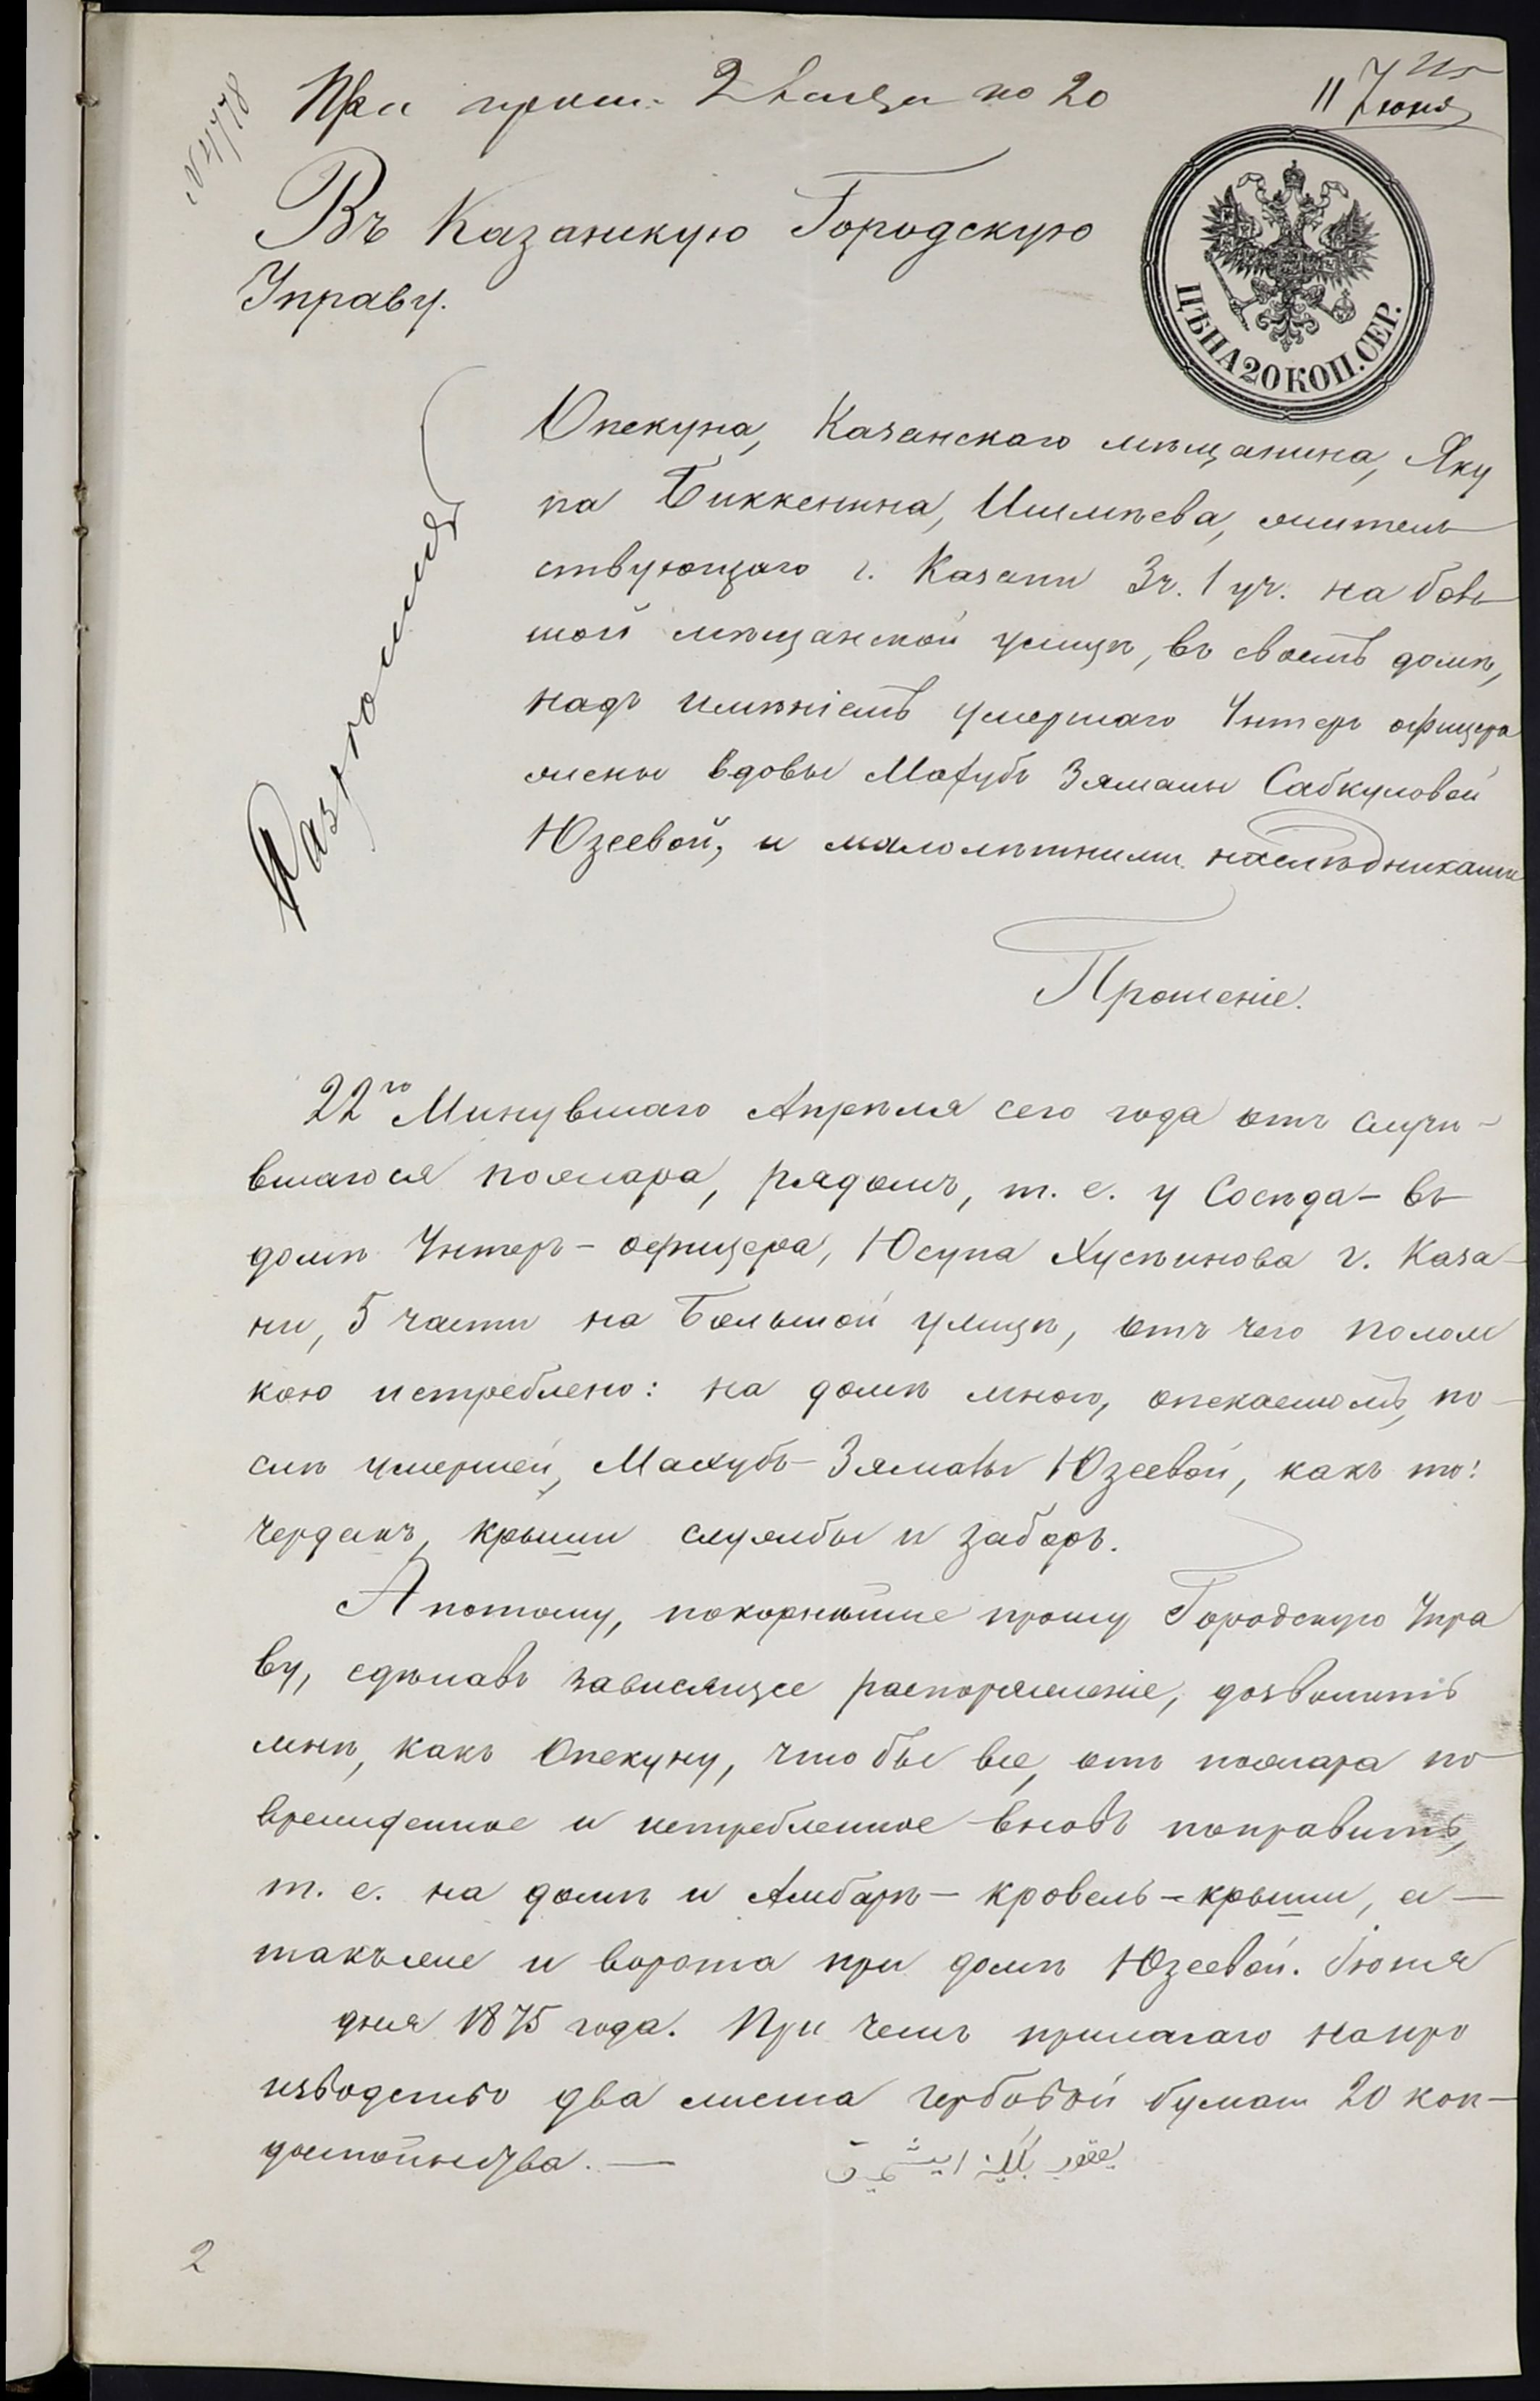 № 4778
При прош. 2 листа по 20
11 Июня
Въ Казанскую Городскую
Управу.
ЦѢНА 20 КОП. СЕР.
Опекуна, Казанскаго мѣщанина, Яку
па Биккенина, Ишмѣева, житель
ствующаго г. Казани 3ч. 1 уч. на боль
шой мѣщанской улицѣ, въ своемъ домѣ,
надъ имѣніемъ умершаго Унтеръ офицера
жены вдовы Махубъ Зяманы Сабкуловой
Юзеевой, и малолѣтними наслѣдниками
Прошеніе.
22го Минувшаго Апрѣля сего года отъ случи-
вшагося пожара, рядомъ, т. е. у Сосѣда - въ
домѣ Унтеръ - офицера, Юсупа Хусѣинова г. Каза-
ни, 5 части на Большой улицѣ, отъ чего полом
кою истреблено: на домѣ мною, опекаемомъ, по-
слѣ умершей, Махубъ - Зяманы Юзеевой, какъ то:
чердакъ, крыши службы и заборъ.
А потому, покорнѣйше прошу Городскую Упра
ву, сдѣлавъ зависящее распоряженіе, дозволить
мнѣ, какъ Опекуну, что бы все, отъ пожара по
врежденное и истребленное вновь поправить,
т. е. на домѣ и Амбарѣ - кровель - крыши, а -
такъже и ворота при домѣ Юзеевой. Іюня
дня 1875 года. При чемъ прилагаю на про
изводство два листа гербовой бумаги 20 коп-
достоинства. —
يعقوب
2